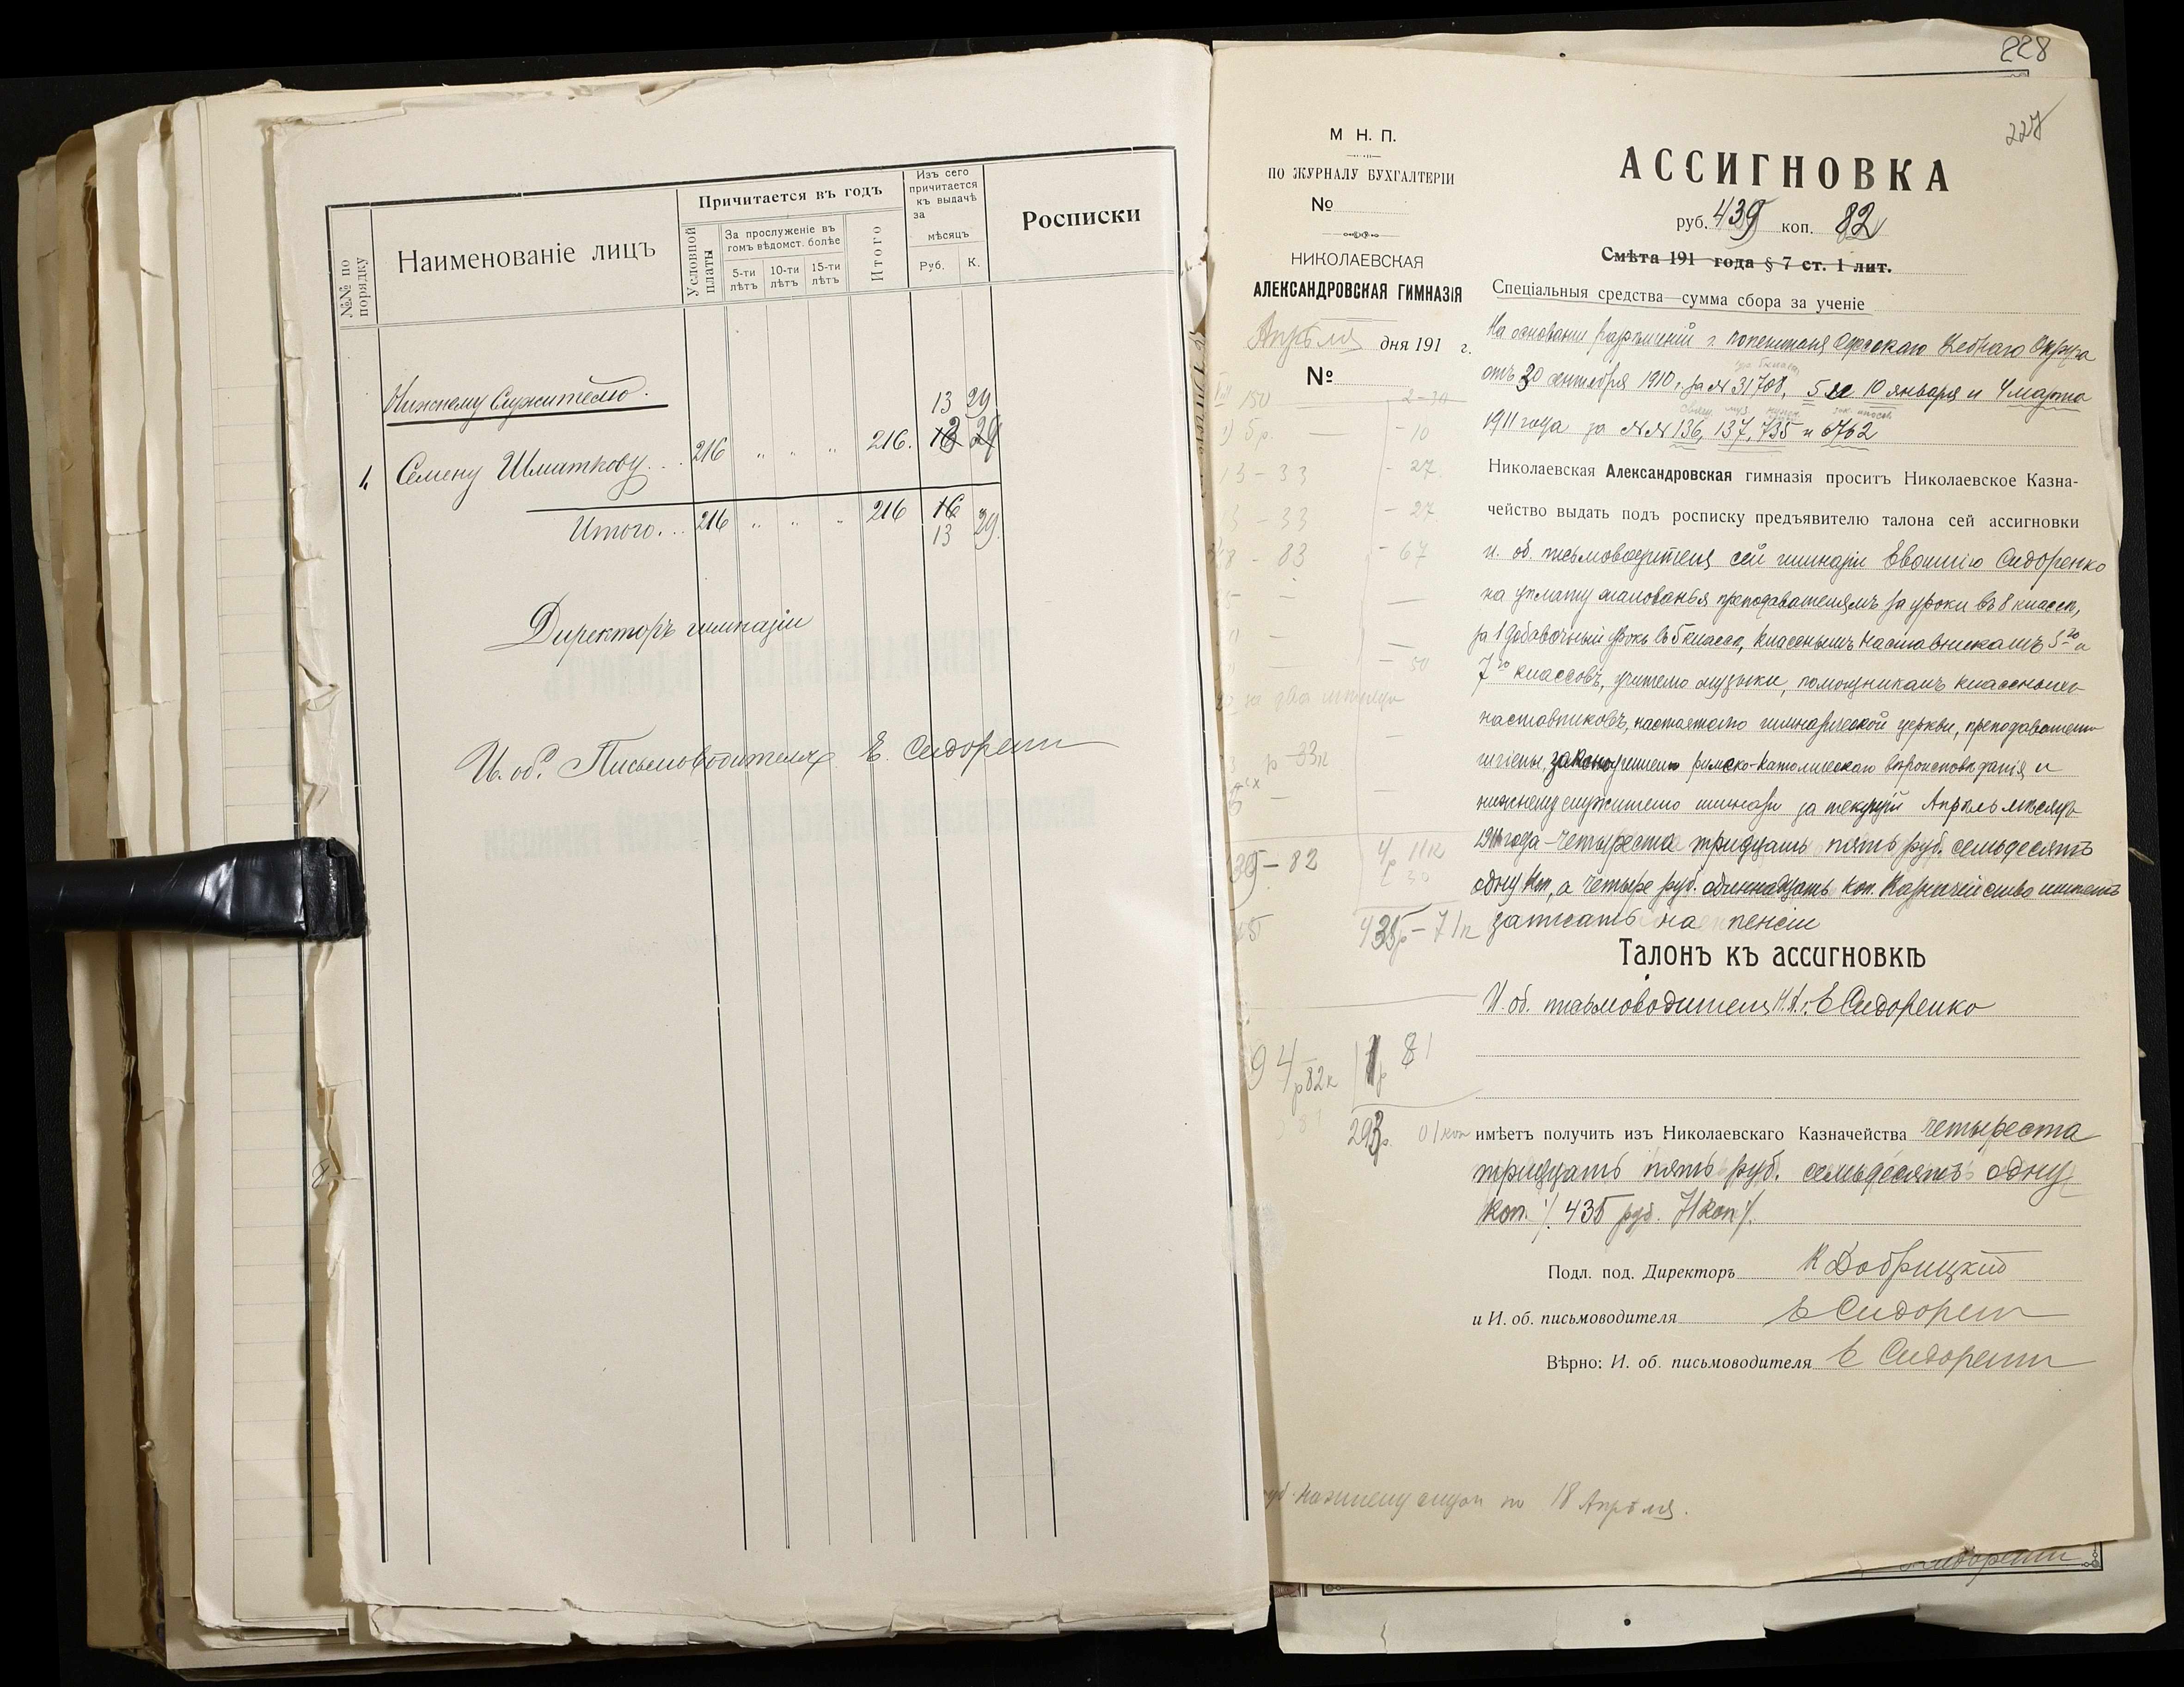 №№ по порядку
Наименованіе лицъ
Причитается въ годъ
Условной платы
За прослуженіе въ
томъ вѣдомст. болѣе
5-ти лѣтъ
10-ти лѣтъ
15-ти лѣтъ
Итого
Изъ сего
причитается
къ выдачѣ
за
мѣсяцъ
Руб. К.
Росписки
Нижнему Служителю.
13 29
1. Семену Шмиткову... 216 " " " 216.
Итого... 216 " " " 216 16
13 29.
Директоръ гимназіи
И. об. Письмоводителя Е. Сидоренко
228
М Н. П.
ПО ЖУРНАЛУ БУХГАЛТЕРІИ
№
НИКОЛАЕВСКАЯ
АЛЕКСАНДРОВСКАЯ ГИМНАЗІЯ
Апрѣля дня 191 г.
№
150
- 10
13 - 33 - 27
13 - 33 - 27
83 - 67
- 50
39 - 82 4р 11к
435р - 71к
94р 82к 1р 81
293р. 01 коп
АССИГНОВКА
руб. 439 коп. 82
Смѣта 191 года § 7 ст. 1 лит.
Спеціальныя средства—сумма сбора за ученіе
На основаніи разрѣшеній г. Попечителя Одесскаго Учебнаго Округа
отъ 30 сентября 1910 г. за № 31708, 5 и 10 января и 4 марта
1911 года за №№ 136, 137, 735 и 6762
Николаевская Александровская гимназія проситъ Николаевское Казна-
чейство выдать подъ росписку предъявителю талона сей ассигновки
и. об. письмоводителя сей гимназіи Сидоренко
на уплату жалованья преподавателямъ за уроки въ 8 классѣ,
за 1 добавочный урокъ въ 5 классѣ, класснымъ наставникамъ 5го и
7го классовъ, учителю музыки, помощникамъ классныхъ
наставниковъ, настоятелю гимназической церкви, преподавателю
гигіены, законоучителю римско-католическаго вѣроисповѣданія и
нижнему служителю гимназіи за текущій Апрѣль мѣсяцъ
1911 года - четыреста тридцать пять руб. семьдесятъ
одну коп, а четыре руб. одиннадцать коп. Казначейство имѣетъ
записать на пенсіи
Талонъ къ ассигновкѣ
И. об. письмоводителя Н.А.г. Е Сидоренко
имѣетъ получить изъ Николаевскаго Казначейства четыреста
тридцать пять руб. семьдесятъ одну
коп. /. 435 руб. 71 коп /.
Подл. под. Директоръ К Добрицкій
и И. об. письмоводителя Е Сидоренко
Вѣрно: И. об. письмоводителя Е Сидоренко
по 18 Апрѣля.
Сидоренко